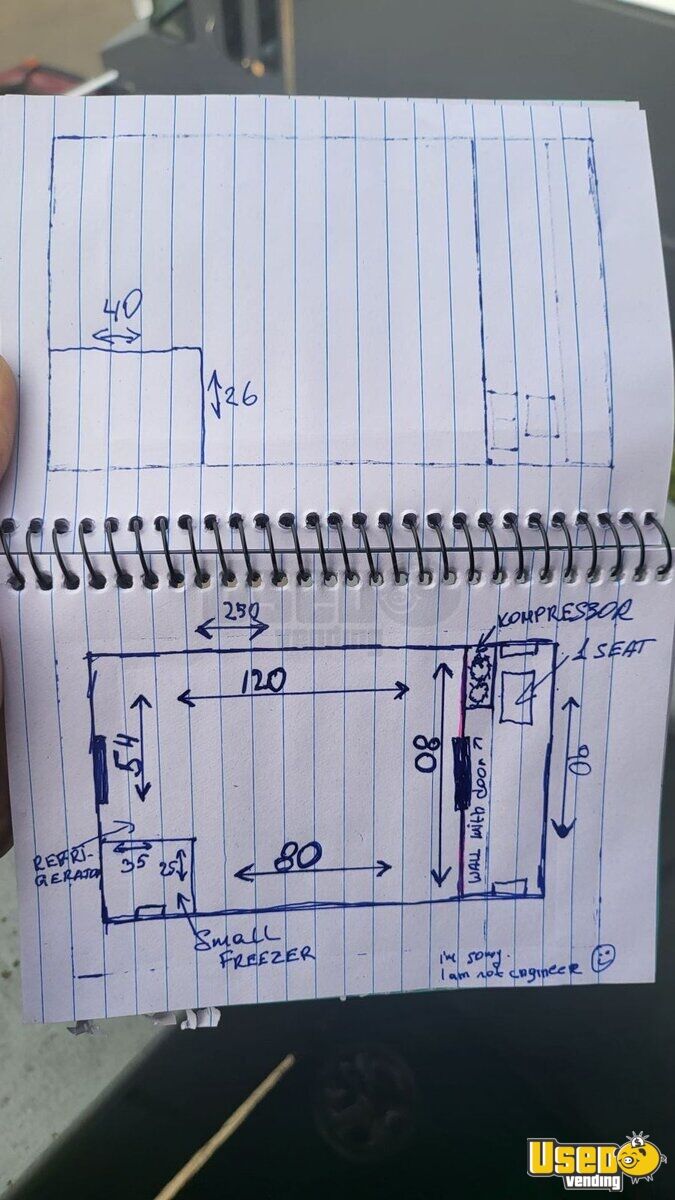 40
26
250
KOMPRESSOR
1 SEAT
120
54
80
90
WALL with door
REFRI-
GERATOR
35
25
80
Small
FREEZER
i'm sorry.
I am not engineer
USED
vending
USED
vending